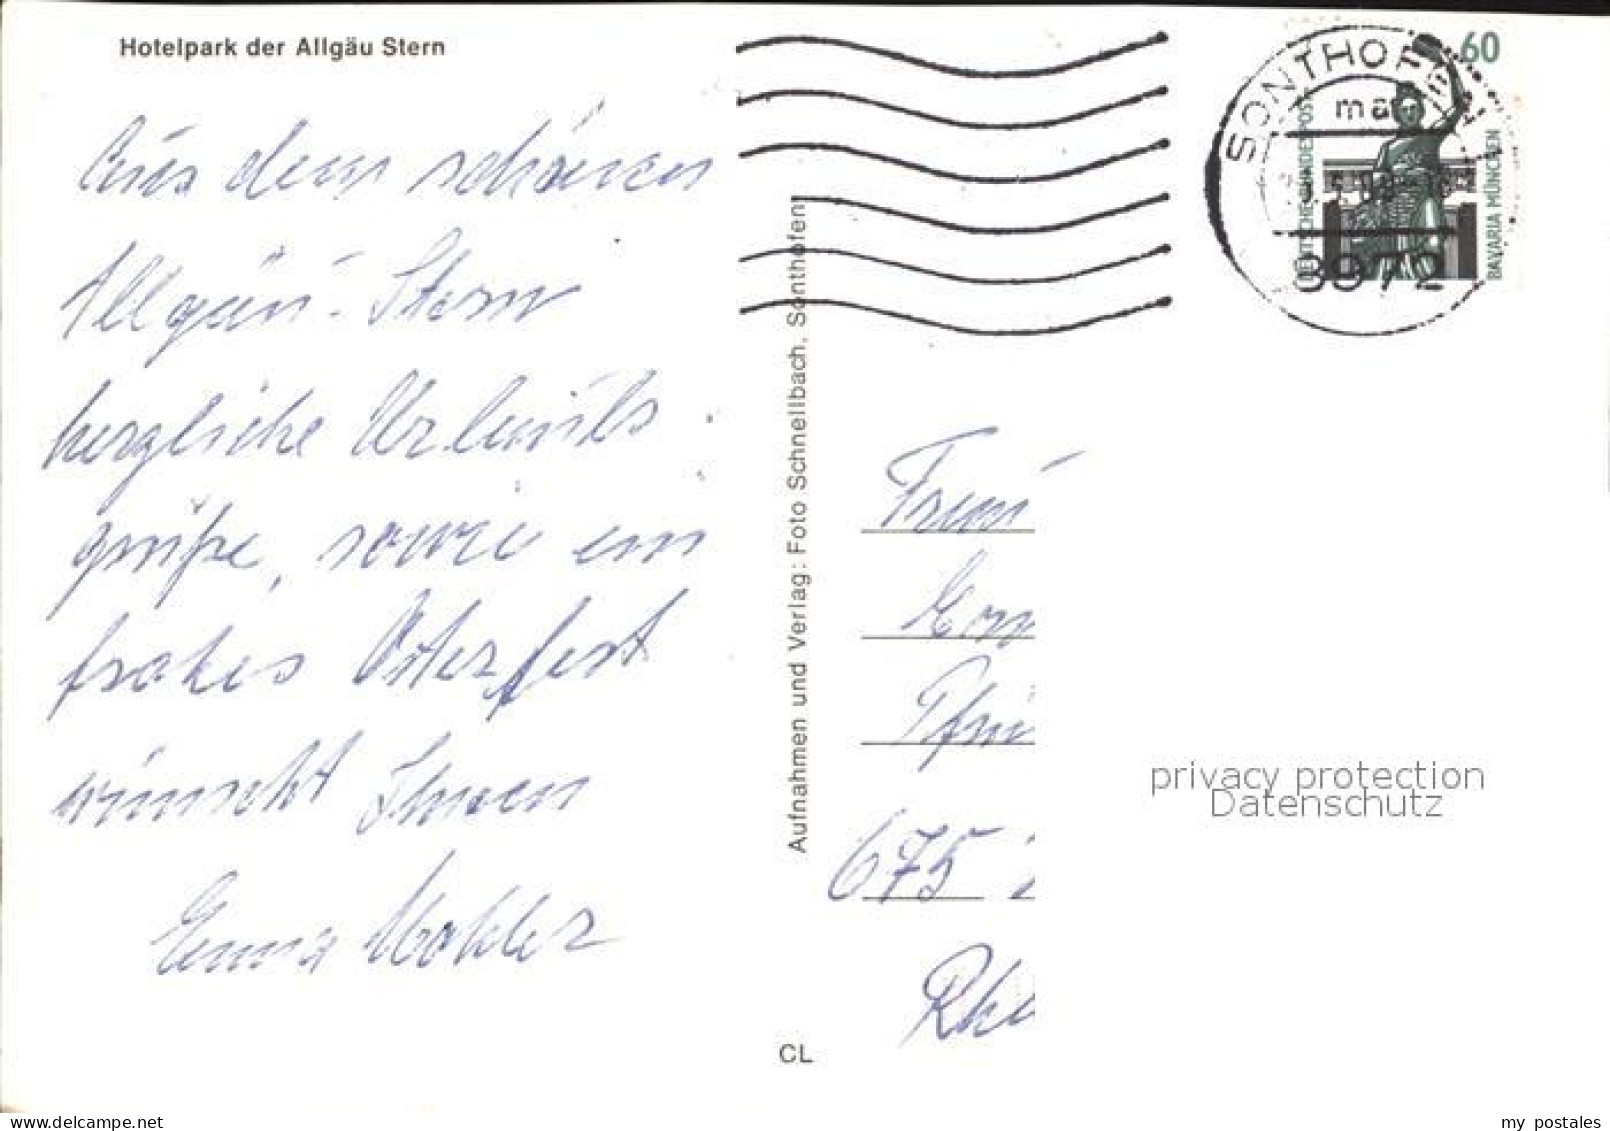 Hotelpark der Allgäu Stern
Aus dem schönen
Allgäu-Stern
herzliche Urlaubs
grüße, sowie ein
frohes Osterfest
wünscht Ihnen
Emma Mohler
Aufnahmen und Verlag: Foto Schnellbach, Sonthofen
CL
SONTHOFEN
8972
60
DEUTSCHE BUNDESPOST
BAVARIA MÜNCHEN
Frau
675
privacy protection
Datenschutz
my postales